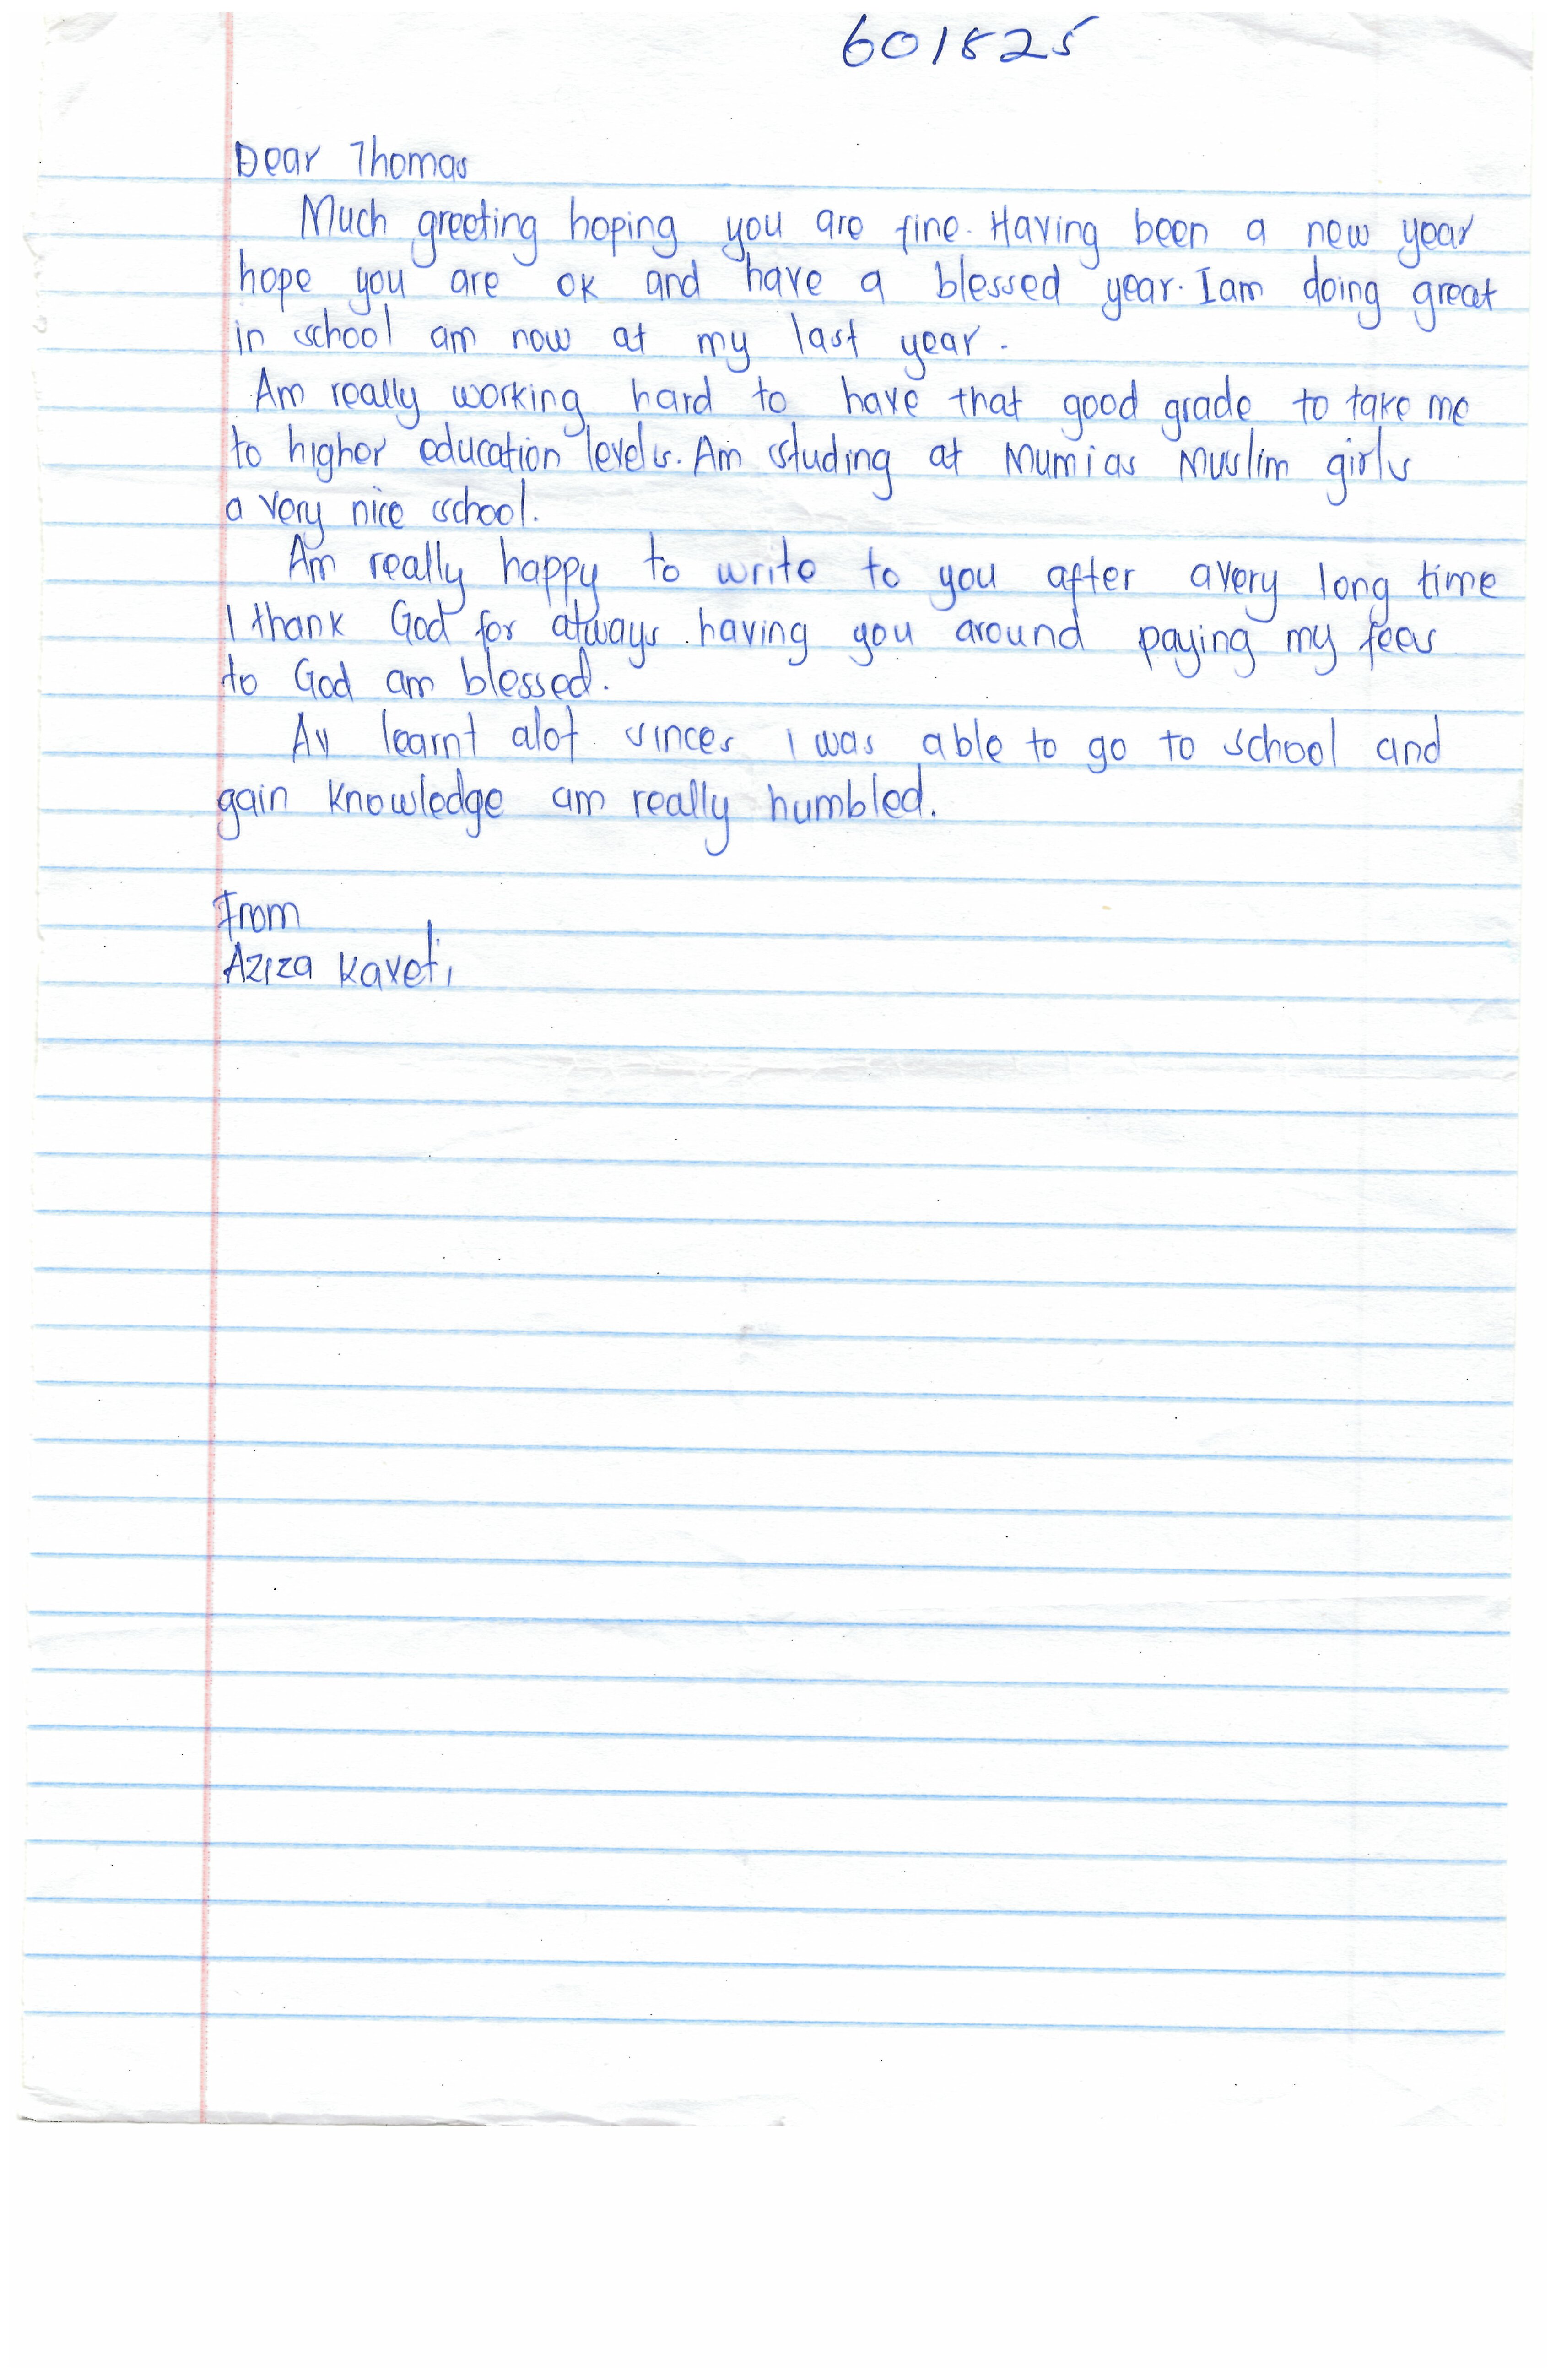 601825
Dear Thomas
Much greeting hoping you are fine. Having been a new year
hope you are ok and have a blessed year. I am doing great
in school am now at my last year.
Am really working hard to have that good grade to take me
to higher education levels. Am studing at Mumias Muslim girls
a very nice school.
Am really happy to write to you after avery long time
I thank God for always having you around paying my fees
to God am blessed.
Av learnt alot sinces I was able to go to school and
gain knowledge am really humbled.
From
Aziza Kaveti